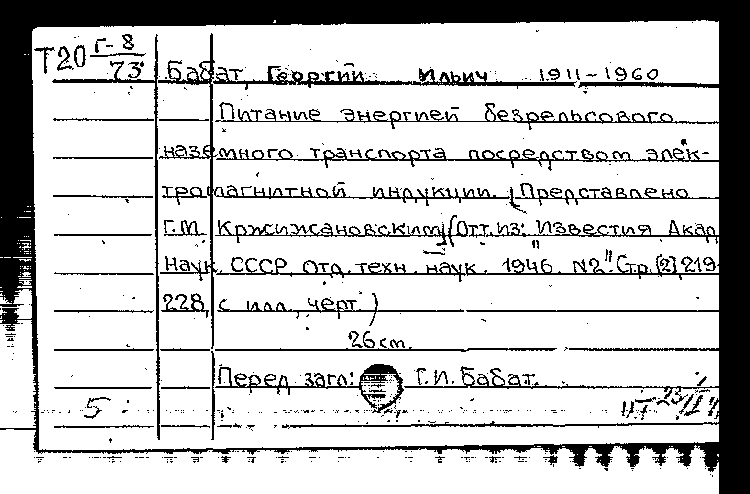 Т20 Г-8/73
Бабат, Георгий Ильич 1911-1960
Питание энергией безрельсового
наземного транспорта посредством элек-
тромагнитной индукции. (Представлено
Г.М. Кржижановским) (Отт. из: "Известия Акад.
Наук СССР, Отд. техн. наук. 1946. N2". Стр. (2) 219-
228, с илл., черт.)
26 см.
Перед загл: Г.И. Бабат.
5